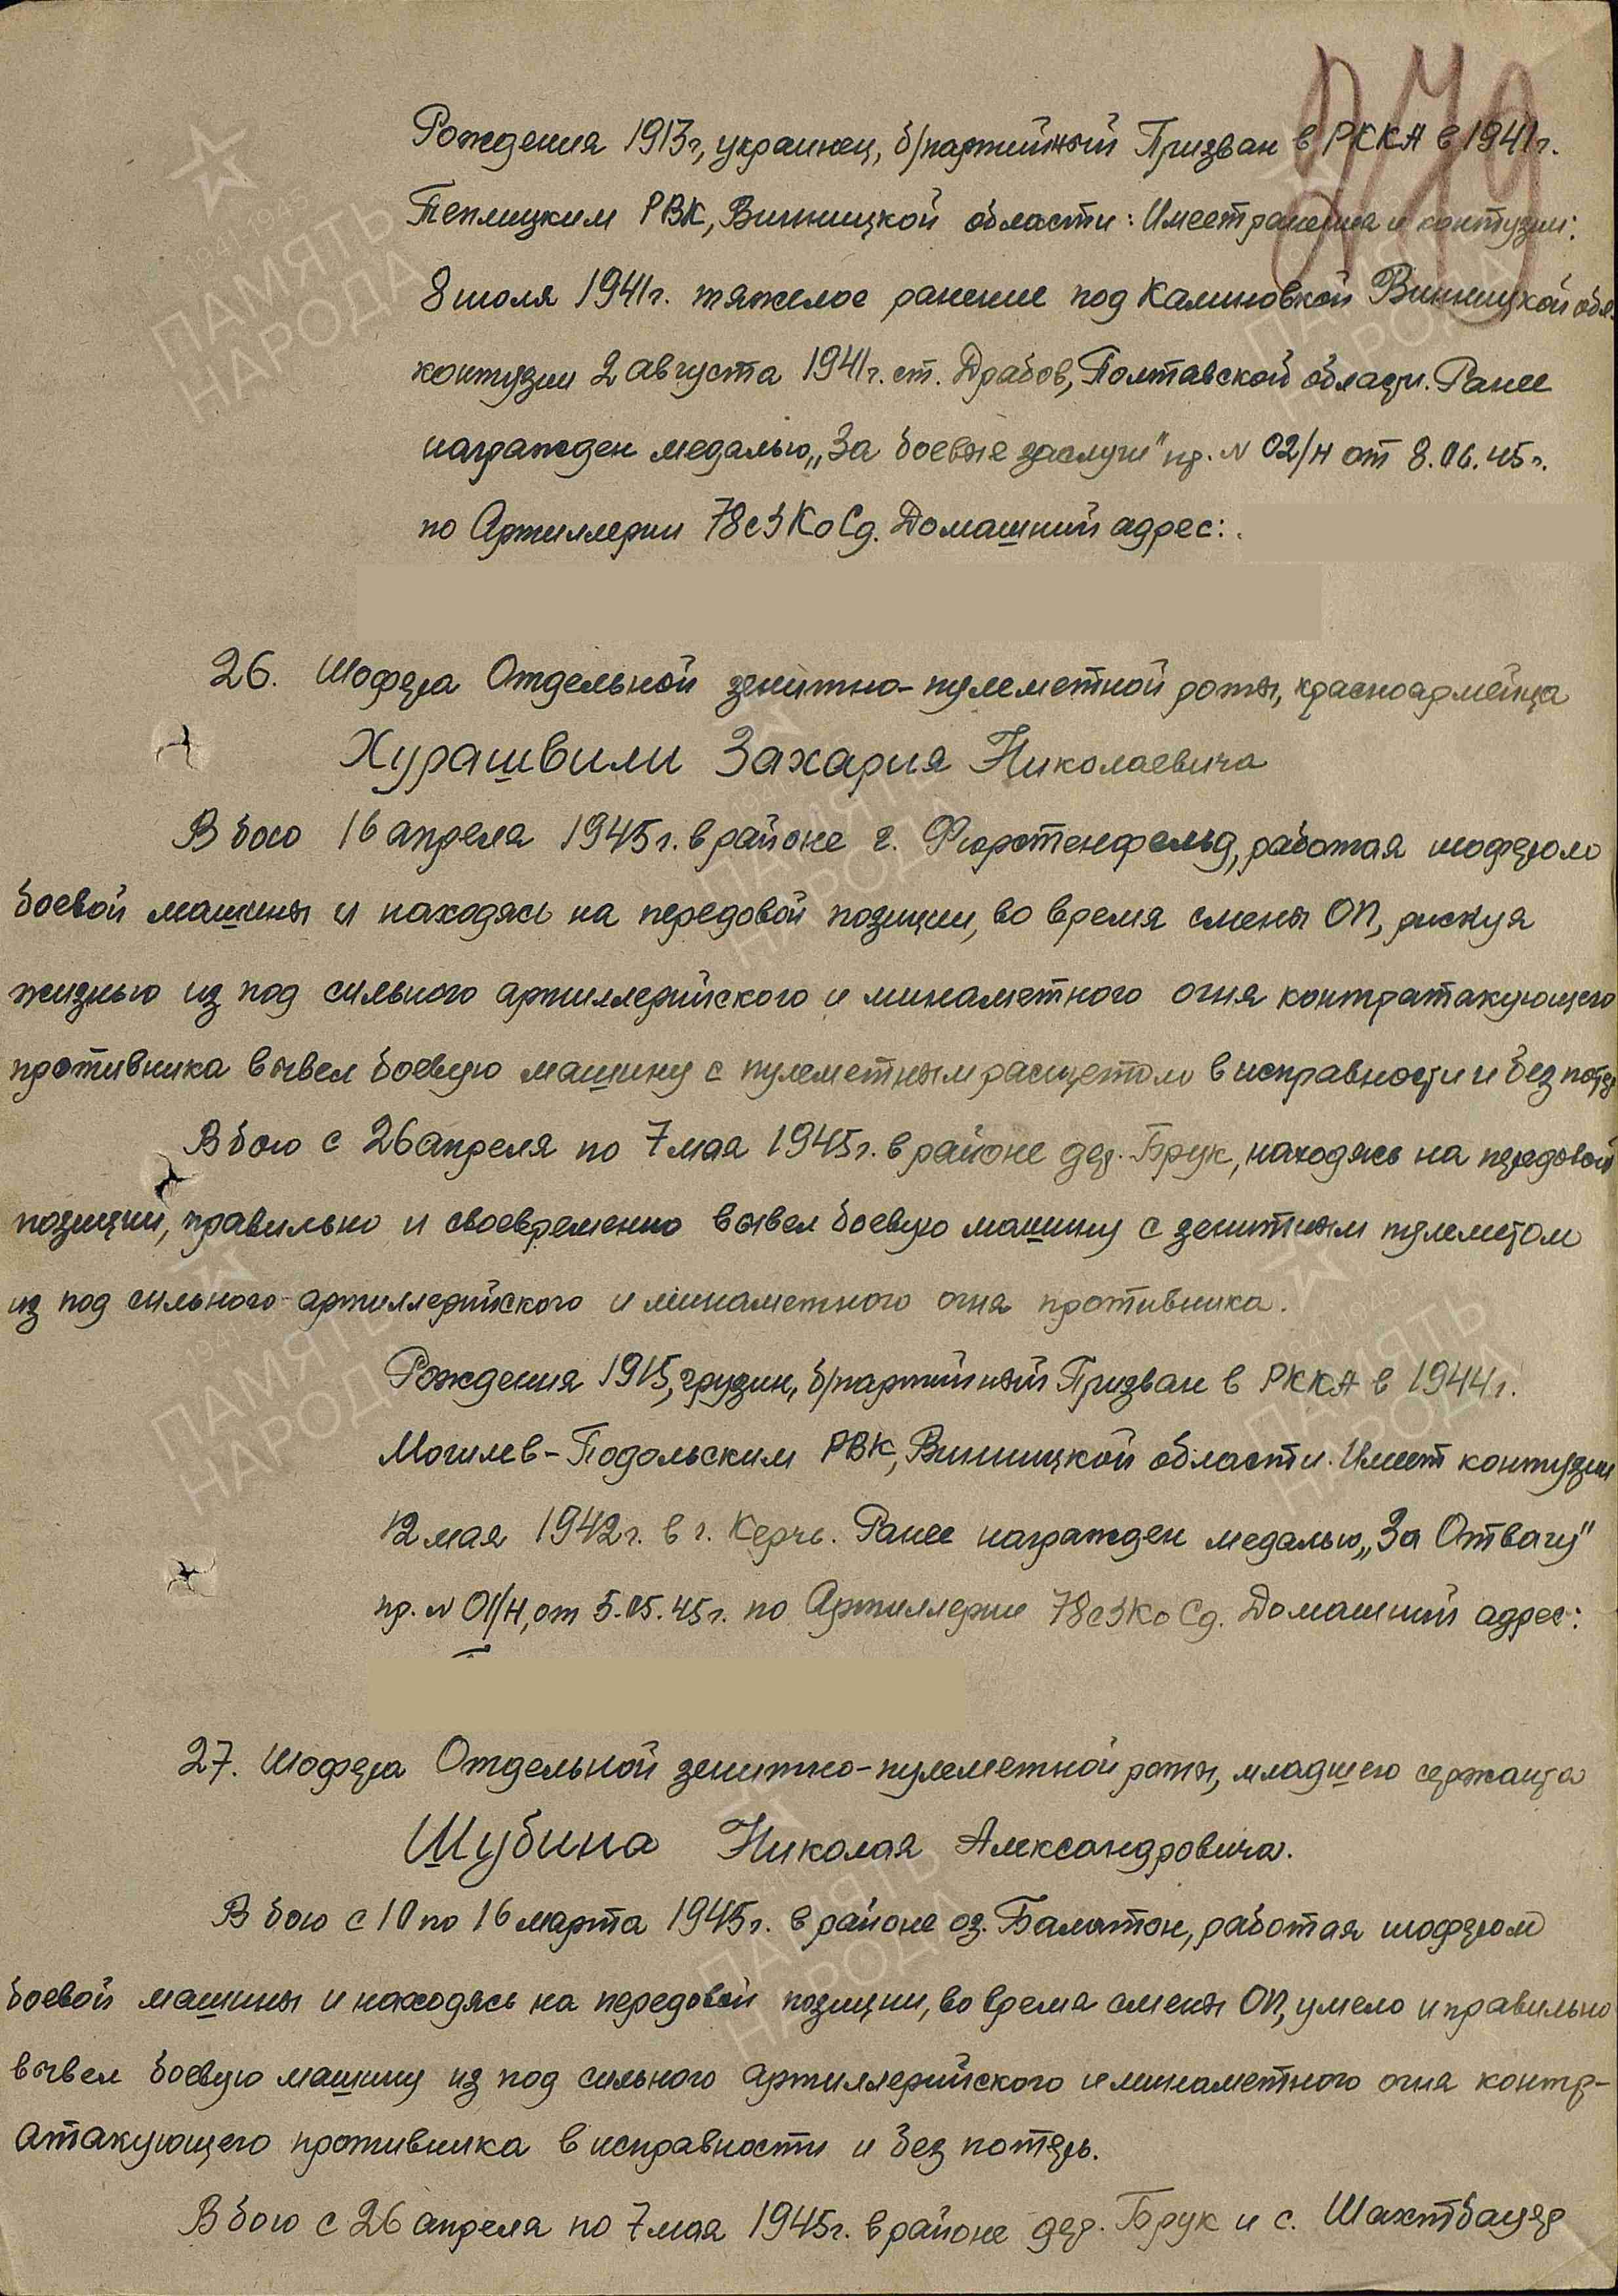 Рождения 1913г, украинец, б/партийный Призван в РККА в 1941г.
Теплицким РВК, Винницкой области: Имеет ранения и контузии:
8 июля 1941г. тяжелое ранение под Калиновкой Винницкой обл.
контузии 2 августа 1941г. ст. Драбов, Полтавской области. Ранее
награжден медалью „За боевые заслуги" пр. N 02/н от 8.06.45г.
по Артиллерии 78сЗКоСд. Домашний адрес:
26. Шофера Отдельной зенитно-пулеметной роты, красноармейца
Хурашвили Захария Николаевича
В бою 16 апреля 1945г. в районе г. Фюрстенфельд, работая шофером
боевой машины и находясь на передовой позиции, во время смены ОП, рискуя
жизнью из под сильного артиллерийского и минаметного огня контратакующего
противника вывел боевую машину с пулеметным расчетом в исправности и без потер
В бою с 26 апреля по 7 мая 1945г. в районе дер. Брук, находясь на передовой
позиции, правильно и своевременно вывел боевую машину с зенитным пулеметом
из под сильного артиллерийского и минаметного огня противника.
Рождения 1915, грузин, б/партийный Призван в РККА в 1944г.
Могилев-Подольским РВК, Винницкой области. Имеет контузии
12 мая 1942г. в г. Керчь. Ранее награжден медалью „За Отвагу"
пр. N 01/н, от 5.05.45г. по Артиллерии 78сЗКоСд. Домашний адрес:
27. Шофера Отдельной зенитно-пулеметной роты, младшего сержанта
Шубина Николая Александровича.
В бою с 10 по 16 марта 1945г. в районе оз. Балатон, работая шофером
боевой машины и находясь на передовой позиции, во время смены ОП, умело и правильно
вывел боевую машину из под сильного артиллерийского и минаметного огня контр-
атакующего противника в исправности и без потерь.
В бою с 26 апреля по 7 мая 1945г. в районе дер. Брук и с. Шахтбауер